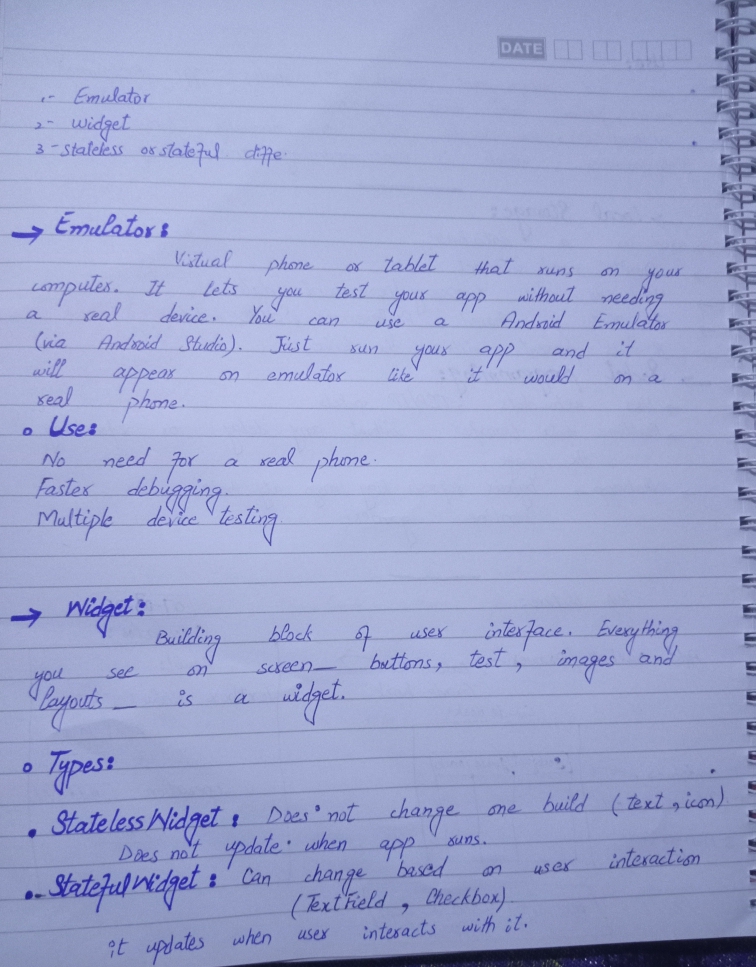 DATE
1.- Emulator
2- widget
3-stateless or stateful diffe.
→ Emulator:
Virtual phone or tablet that runs on your
computer. It lets you test your app without needing
a real device. You can use a Android Emulator
(via Android Studio). Just run your app and it
will appear on emulator like it would on a
real phone.
Use:
No need for a real phone.
Faster debugging.
Multiple device testing
→ Widget:
Building block of user interface. Everything
you see on screen_ buttons, test, images and
layouts_ is a widget.
Types:
• StatelessWidget: Does not change one build (text, icon)
Does not update when app runs.
• StatefulWidget: Can change based on user interaction
(TextField, Checkbox)
it updates when user interacts with it.